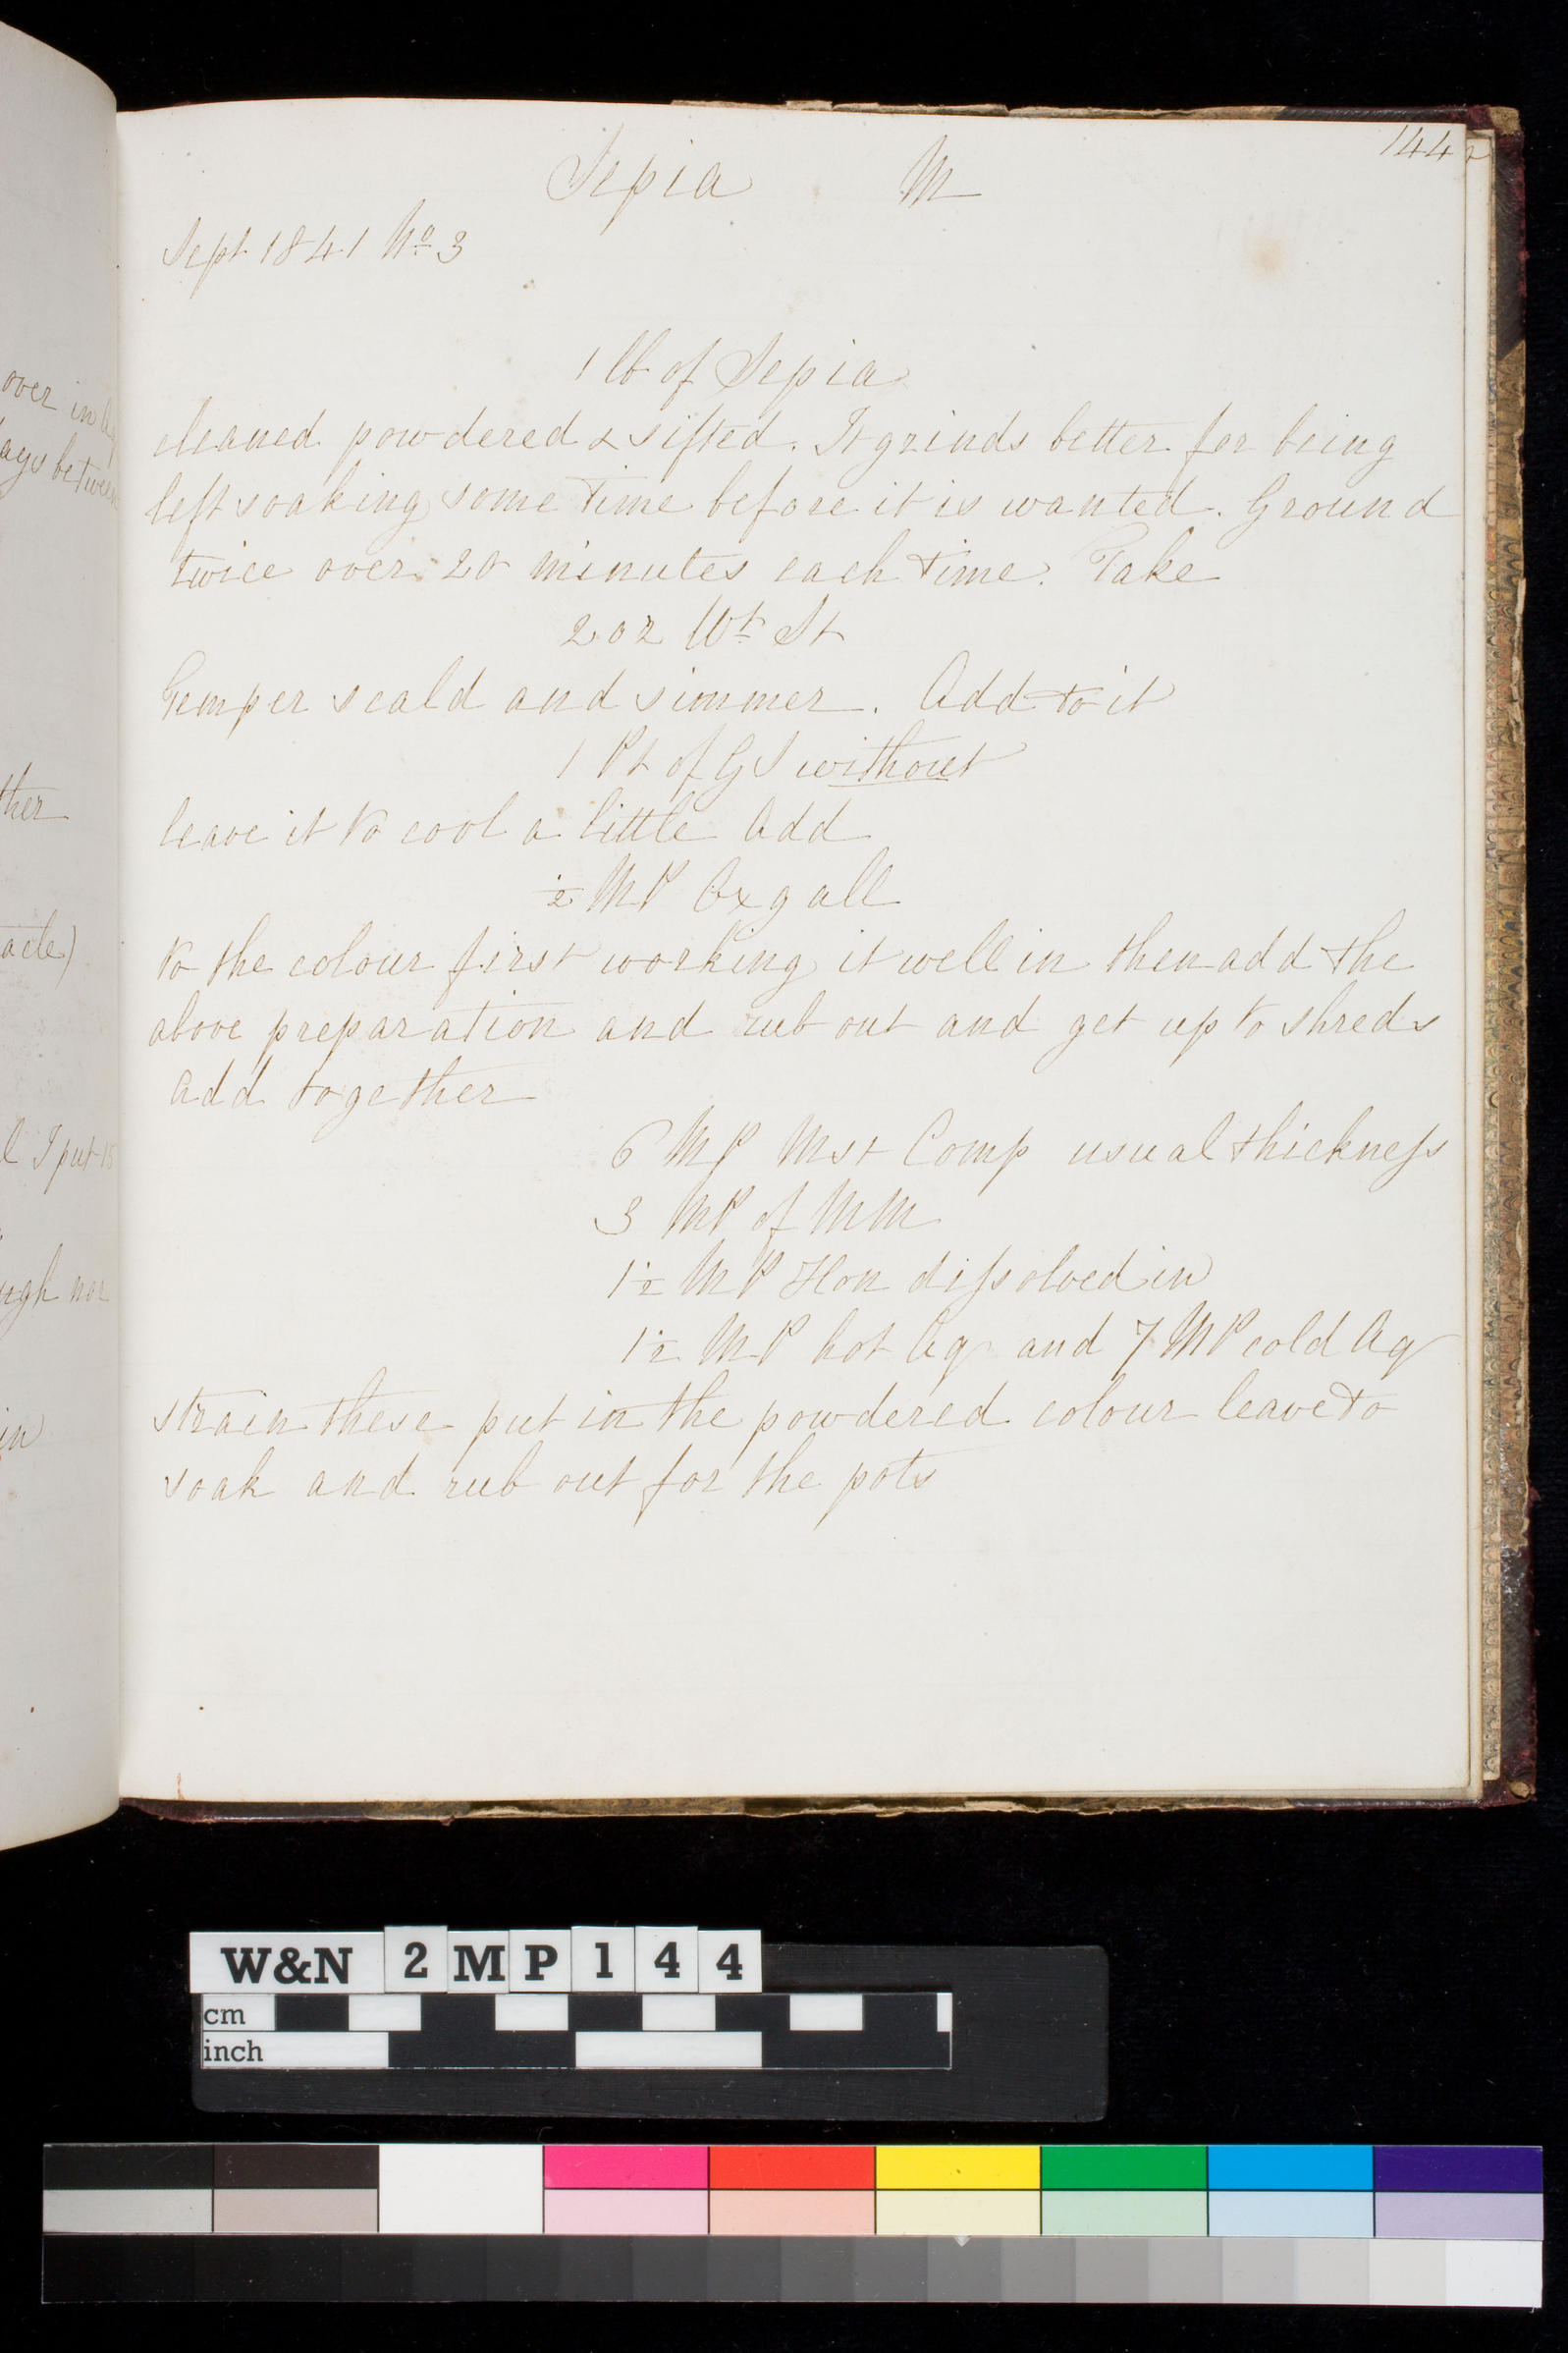 144
Sepia M
Sept 1841 No 3
1 lb of Sepia
cleaned powdered & sifted. It grinds better for being
left soaking some time before it is wanted. Ground
twice over 20 minutes each time. Take
2 oz Wt St
Temper scald and simmer. Add to it
1 Pt of GS without
leave it to cool a little Add
½ MP Oxgall
to the colour first working it well in then add the
above preparation and rub out and get up to shreds
Add together
6 MP Mst Comp usual thickness
3 MP of MM
1½ MP Hon dissolved in
1½ MP hot Aq and 7 MP cold Aq
strain these put in the powdered colour leave to
soak and rub out for the pots
over in
ays between
ther
acle)
l I put 15
ugh nor
in
W&N 2MP144
cm
inch